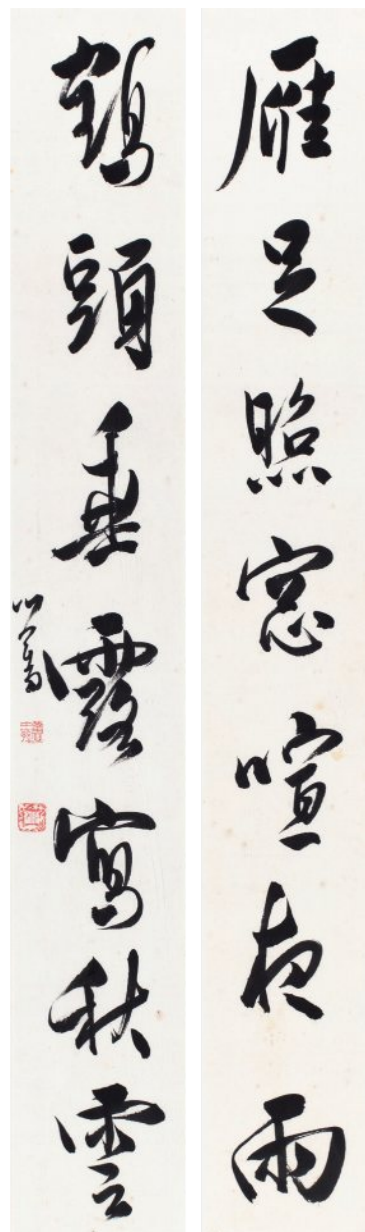 雁足照窓喧夜雨
鶴頭垂露寫秋雲
心畬